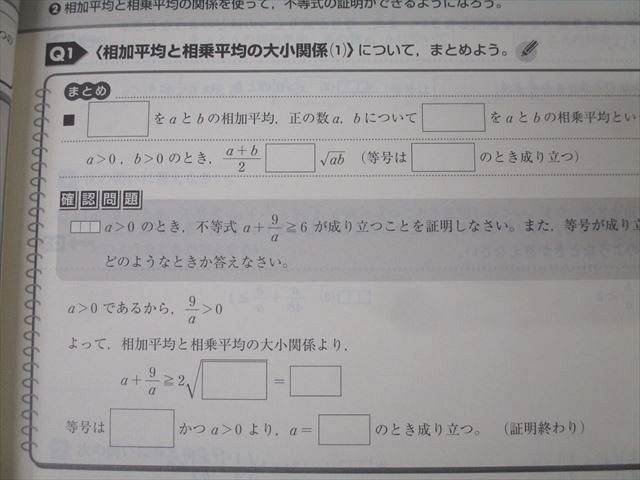 ❷ 相加平均と相乗平均の関係を使って，不等式の証明ができるようになろう。
Q1 〈相加平均と相乗平均の大小関係(1)〉について，まとめよう。
まとめ
■ □をaとbの相加平均，正の数a，bについて□をaとbの相乗平均とい
a>0，b>0のとき，(a+b)/2 □ √ab （等号は□のとき成り立つ）
確認問題
a>0 のとき，不等式 a+9/a≧6 が成り立つことを証明しなさい。また，等号が成り立
どのようなときか答えなさい。
a>0 であるから，9/a>0
よって，相加平均と相乗平均の大小関係より，
a+9/a≧2√□ = □
等号は□かつ a>0 より，a=□のとき成り立つ。（証明終わり）